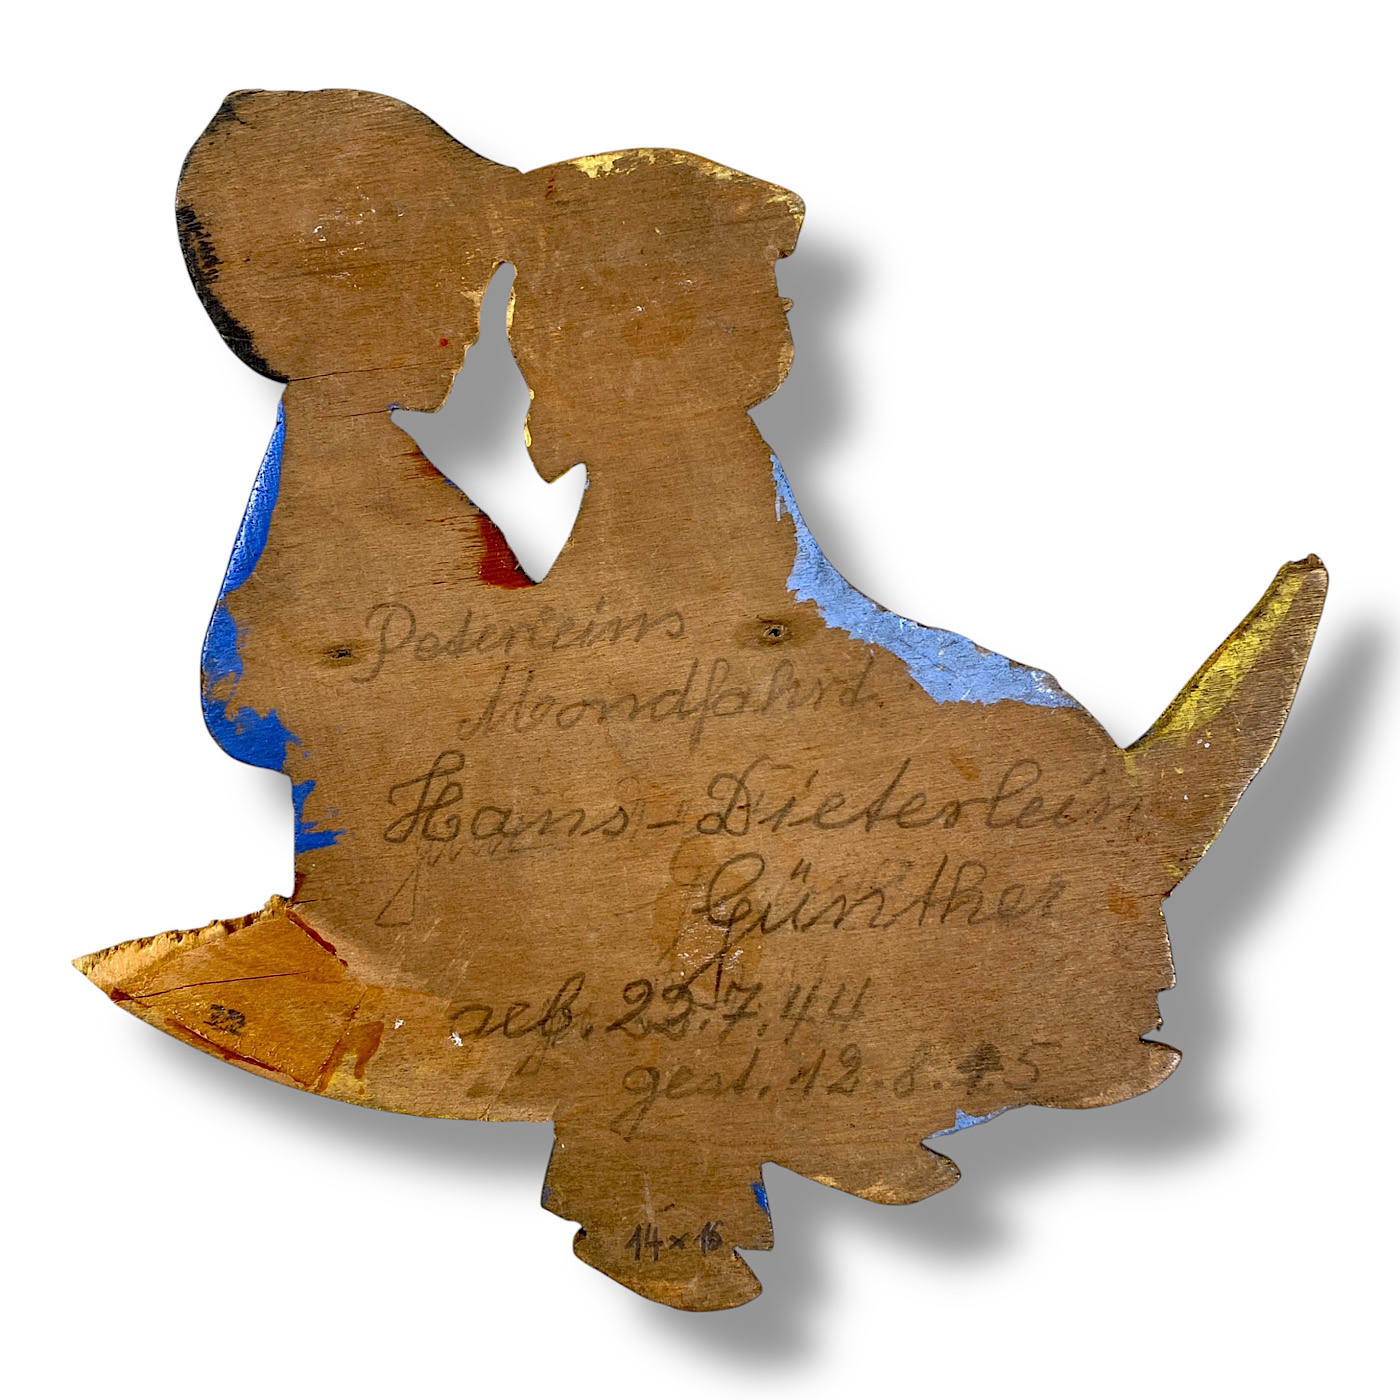 Peterleins
Mondfahrt.
Hans-Dieterlein
Günther
geb. 23.7.44
gest. 12.8.45
14 x 16